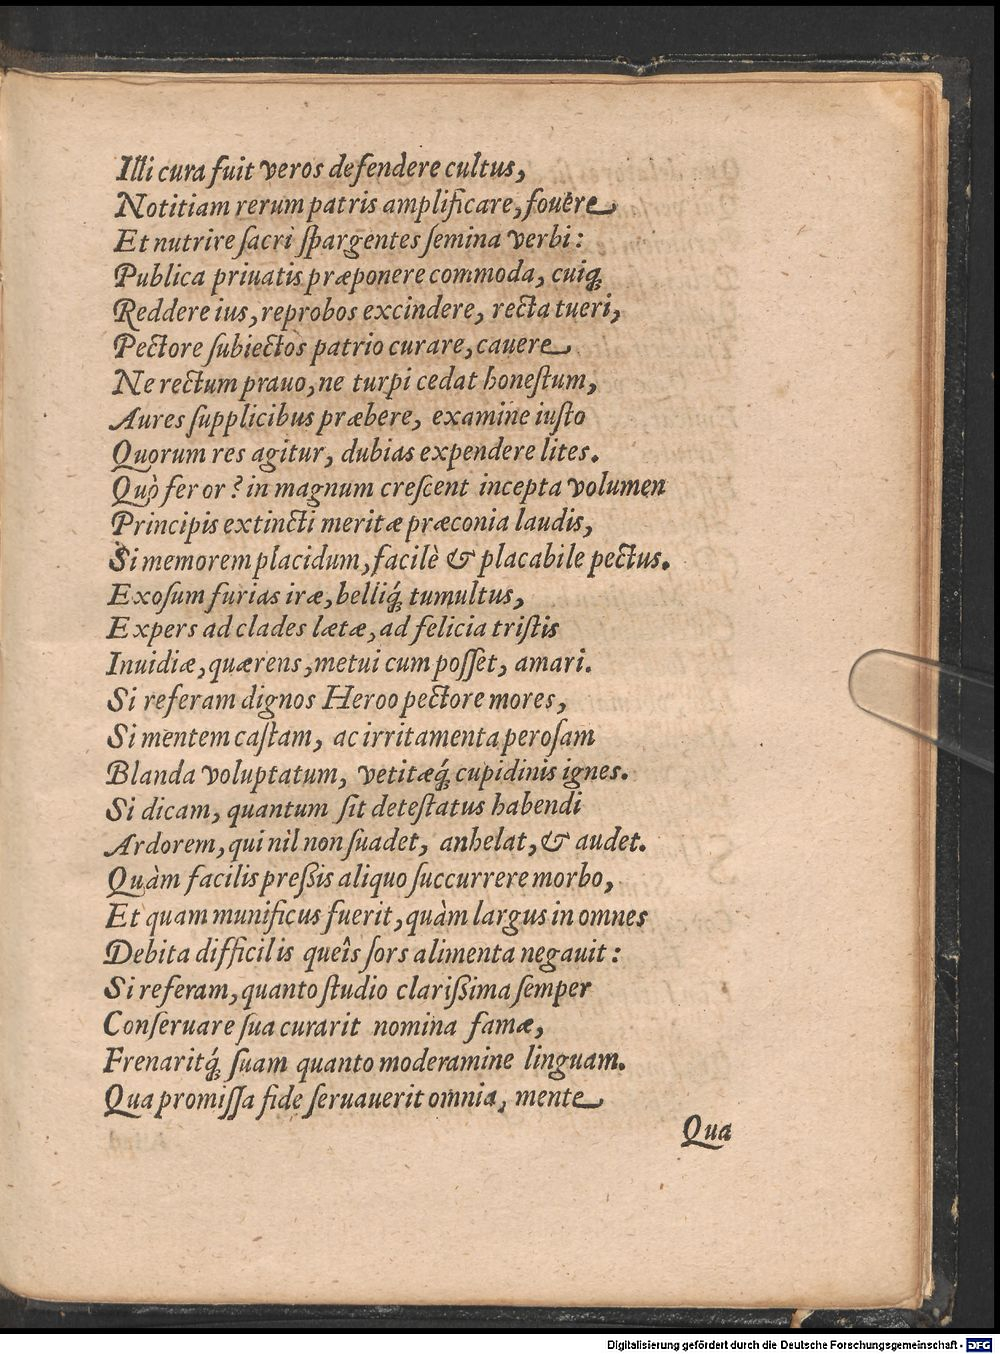 Illi cura fuit veros defendere cultus,
Notitiam rerum patris amplificare, fouere
Et nutrire sacri spargentes semina verbi:
Publica priuatis præponere commoda, cuiq́;
Reddere ius, reprobos excindere, recta tueri,
Pectore subiectos patrio curare, cauere
Ne rectum prauo, ne turpi cedat honestum,
Aures supplicibus præbere, examine iusto
Quorum res agitur, dubias expendere lites.
Quò feror? in magnum crescent incepta volumen
Principis extincti meritæ præconia laudis,
Si memorem placidum, facilè & placabile pectus.
Exosum furias iræ, belliq́; tumultus,
Expers ad clades lætæ, ad felicia tristis
Inuidiæ, quærens, metui cum posset, amari.
Si referam dignos Heroo pectore mores,
Si mentem castam, ac irritamenta perosam
Blanda voluptatum, vetitæq́; cupidinis ignes.
Si dicam, quantum sit detestatus habendi
Ardorem, qui nìl non suadet, anhelat, & audet.
Quàm facilis preßis aliquo succurrere morbo,
Et quam munificus fuerit, quàm largus in omnes
Debita difficilis queîs sors alimenta negauit:
Si referam, quanto studio clarißima semper
Conseruare sua curarit nomina famæ,
Frenaritq́; suam quanto moderamine linguam.
Qua promissa fide seruauerit omnia, mente
Qua
Digitalisierung gefördert durch die Deutsche Forschungsgemeinschaft - DFG